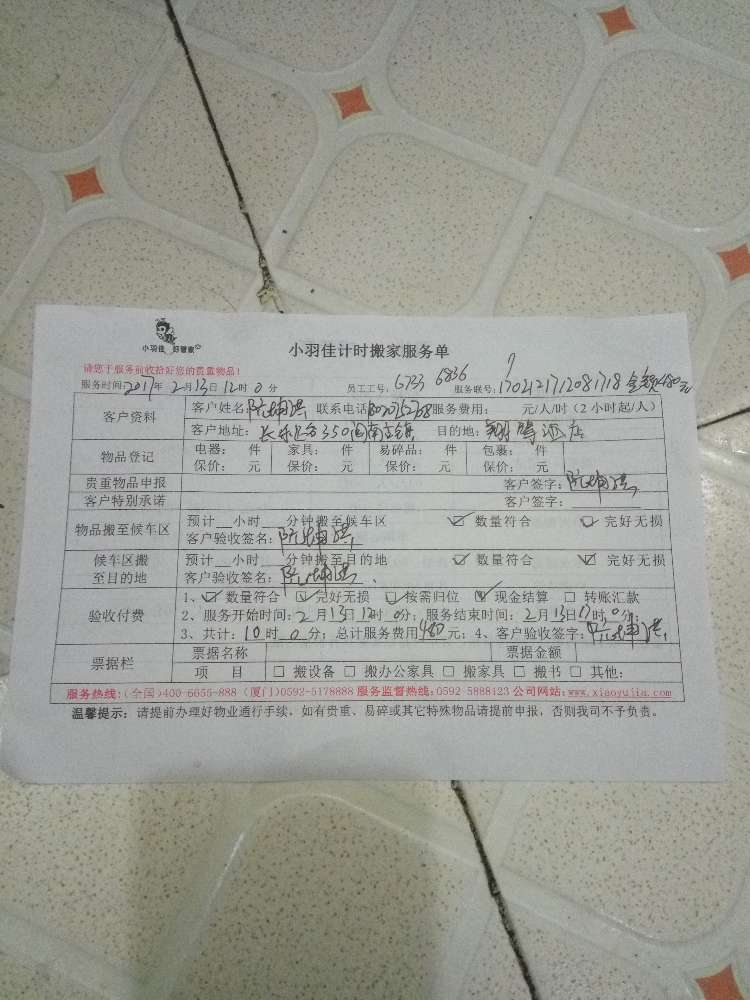 小羽佳 好管家
小羽佳计时搬家服务单
请您于服务前收拾好您的贵重物品!
服务时间:2017年 2月13日12时0分 员工工号:6733 6836 服务联号:1702121712081718 金额480元
客户资料 客户姓名: 联系电话 服务费用: 元/人/时(2小时起/人)
客户地址: 目的地:翔鹭酒店
物品登记 电器: 件 家具: 件 易碎品: 件 包裹: 件
保价: 元 保价: 元 保价: 元 保价: 元
贵重物品申报 客户签字:
客户特别承诺 客户签字:
物品搬至候车区 预计__小时__分钟搬至候车区 ☑数量符合 ☑完好无损
客户验收签名:
候车区搬至目的地 预计__小时__分钟搬至目的地 ☑数量符合 ☑完好无损
客户验收签名:
验收付费 1、☑数量符合 ☑完好无损 ☑按需归位 ☑现金结算 □转账汇款
2、服务开始时间:2月13日12时0分;服务结束时间:2月13日17时0分;
3、共计:10时0分;总计服务费用480元;4、客户验收签字:
票据栏 票据名称 票据金额
项 目 □搬设备 □搬办公家具 □搬家具 □搬书 □其他:
服务热线:(全国)400-6655-888 (厦门)0592-5178888 服务监督热线:0592 5888123 公司网站:www.xiaoyujia.com
温馨提示:请提前办理好物业通行手续,如有贵重、易碎或其它特殊物品请提前申报,否则我司不予负责。